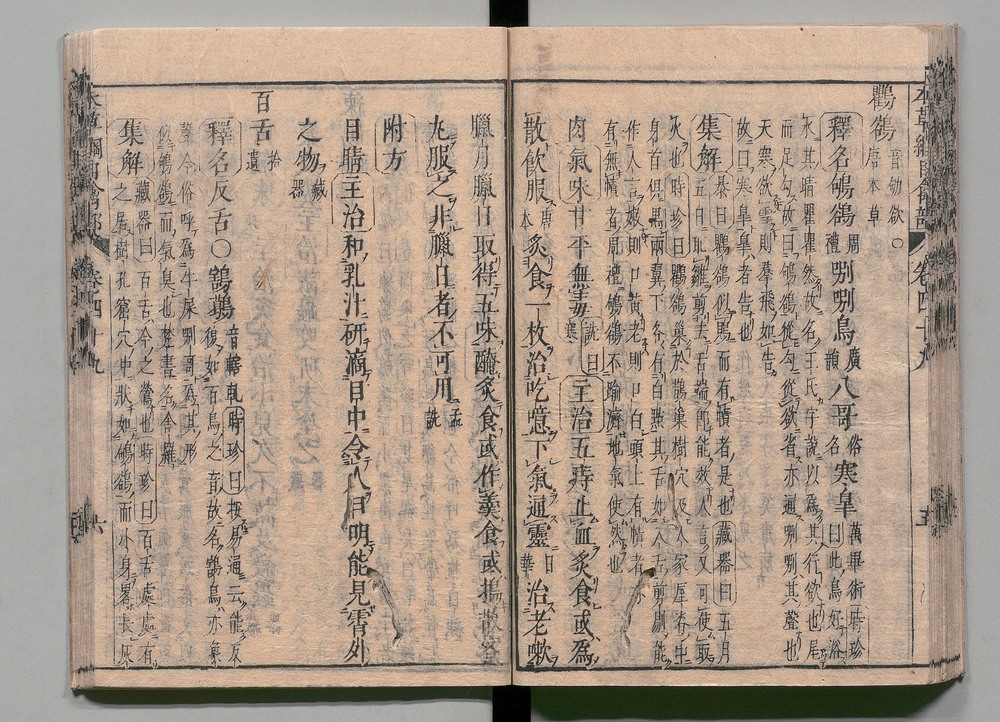 本草綱目禽部 卷四十九 五
鸜鵒 音劬欲○唐本草
釋名 鴝鵒 周禮 唎唎鳥 廣韻 八哥 俗名 寒皐 萬畢術 時珍曰此鳥好浴
水其睛瞿瞿然故名王氏字說以爲其行欲也尾
而足勾故曰鴝鵒從勾從欲省亦通唎唎其聲也
天寒欲雪則羣飛如告故曰寒皐皐者告也
集解 恭曰鸜鵒似鵙而有幘者是也藏器曰五月
五日取雛剪去舌端即能效人言又可使取
火也時珍曰鸜鵒巢於鵲巢樹穴及人家屋脊中
身首俱黑兩翼下各有白點其舌如人舌剪剔能
作人言嫩則口黃老則口白頭上有幘者亦
有無幘者周禮鴝鵒不踰濟地氣使然也
肉 氣味 甘平無毒 詵曰寒 主治 五痔止血炙食或爲
散飲服 唐本 炙食一枚治吃噫下氣通靈 日華 治老嗽
臘月臘日取得五味醃炙食或作羹食或搗散蜜
丸服之非臘日者不可用 孟詵
附方
目睛 主治 和乳汁研滴目中令人目明能見霄外
之物 藏器
百舌 拾遺
釋名 反舌○鶷鶡 音轄軋 時珍曰按易通云能反
復如百鳥之音故名鶷鳥亦象
聲今俗呼爲牛屎唎哥爲其形
似鴝鵒而氣臭也
集解 藏器曰百舌今之鶯也時珍曰百舌處處有
之居樹孔窟穴中狀如鴝鵒而小身畧長灰
本草綱目禽部 卷四十九 六